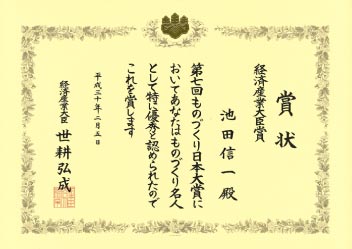 賞状
経済産業大臣賞
池田信一殿
第七回ものづくり日本大賞に
おいてあなたはものづくり名人
として特に優秀と認められたので
これを賞します
平成三十年二月五日
経済産業大臣 世耕弘成